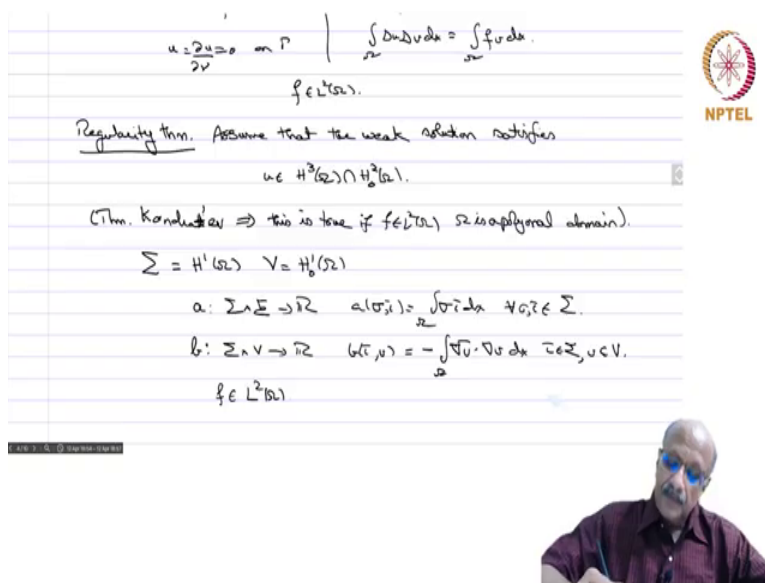 u = ∂u/∂ν = 0 on Γ | ∫_Ω Δu Δv dx = ∫_Ω f v dx.
f ∈ L²(Ω).
NPTEL
Regularity thm. Assume that the weak solution satisfies
u ∈ H³(Ω) ∩ H₀²(Ω).
(Thm. ⇒ this is true if f ∈ L²(Ω) Ω is a polygonal domain).
Σ = H¹(Ω) V = H₀¹(Ω)
a: Σ × Σ → ℝ a(σ,τ) = ∫_Ω στ dx ∀ σ,τ ∈ Σ.
b: Σ × V → ℝ b(τ,v) = - ∫_Ω ∇τ · ∇v dx τ ∈ Σ, v ∈ V.
f ∈ L²(Ω)